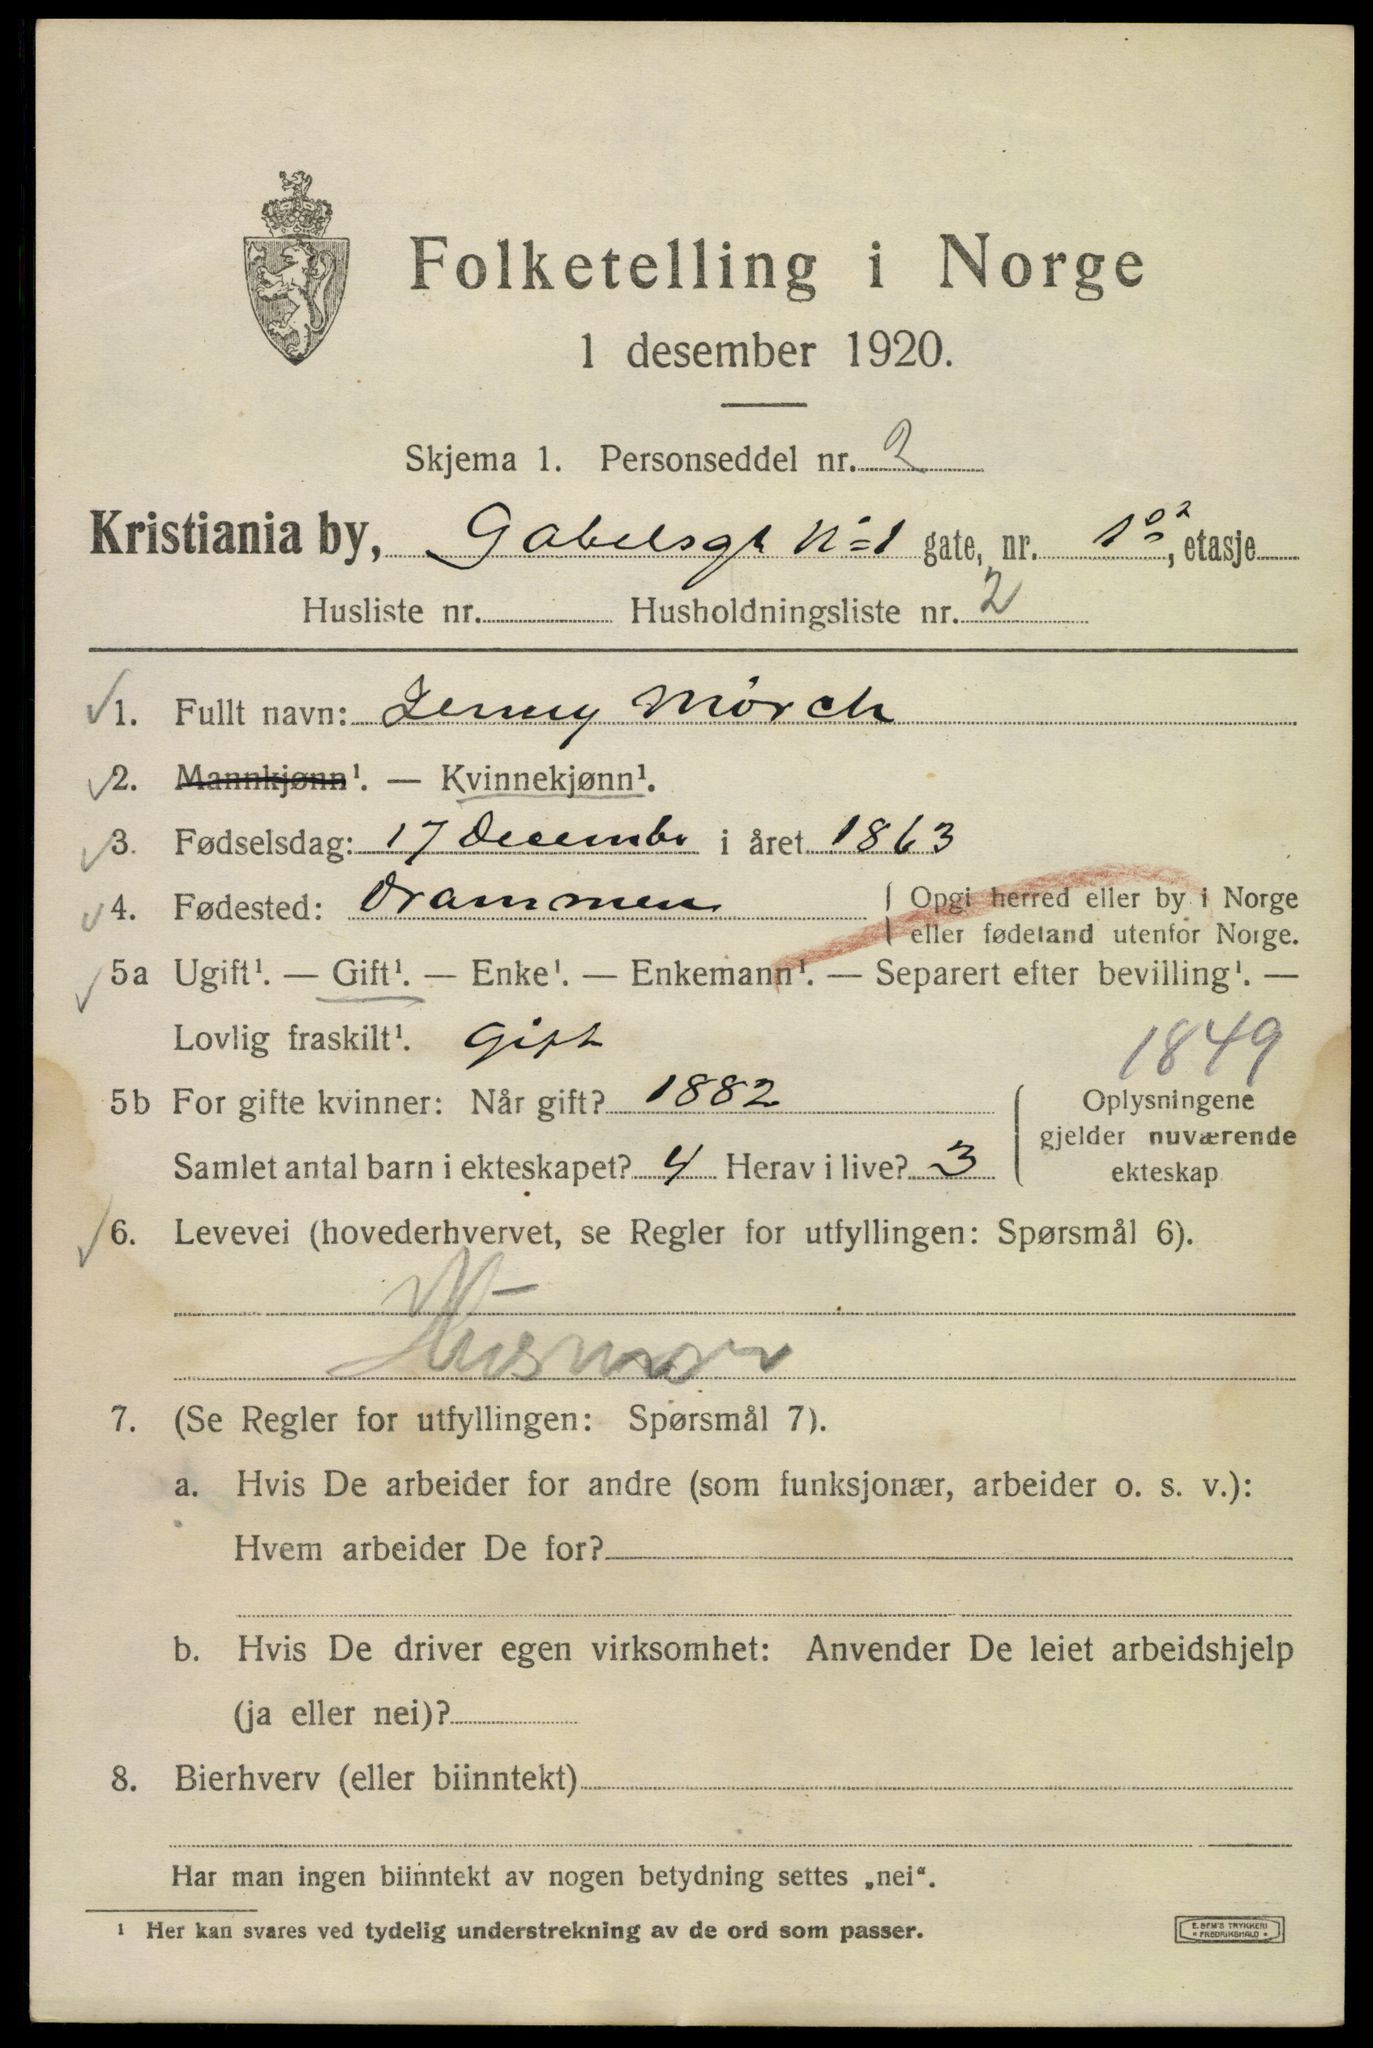 Folketelling i Norge
1 desember 1920.
Skjema 1. Personseddel nr. 2
Kristiania by, Gabelsgt No 1 gate, nr. 1, etasje
Husliste nr. Husholdningsliste nr. 2
1. Fullt navn: Jenny Mörch
2. Mannkjønn¹. — Kvinnekjønn¹.
3. Fødselsdag: 17 Decembr i året 1863
4. Fødested: Drammen { Opgi herred eller by i Norge
eller fødeland utenfor Norge.
5a Ugift¹. — Gift¹. — Enke¹. — Enkemann¹. — Separert efter bevilling¹. —
Lovlig fraskilt¹. Gift 1849
5b For gifte kvinner: Når gift? 1882 { Oplysningene
gjelder nuværende
Samlet antal barn i ekteskapet? 4 Herav i live? 3 ekteskap
6. Levevei (hovederhvervet, se Regler for utfyllingen: Spørsmål 6).
Husmor
7. (Se Regler for utfyllingen: Spørsmål 7).
a. Hvis De arbeider for andre (som funksjonær, arbeider o. s. v.):
Hvem arbeider De for?
b. Hvis De driver egen virksomhet: Anvender De leiet arbeidshjelp
(ja eller nei)?
8. Bierhverv (eller biinntekt)
Har man ingen biinntekt av nogen betydning settes „nei“.
¹ Her kan svares ved tydelig understrekning av de ord som passer.
E. SEM'S TRYKKERI
* FREDRIKSHALD *